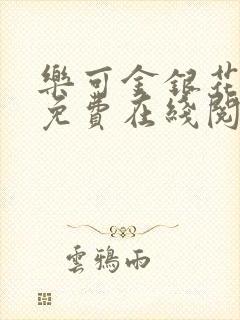 樂可金銀花
免費在綫閱
雲鴉雨